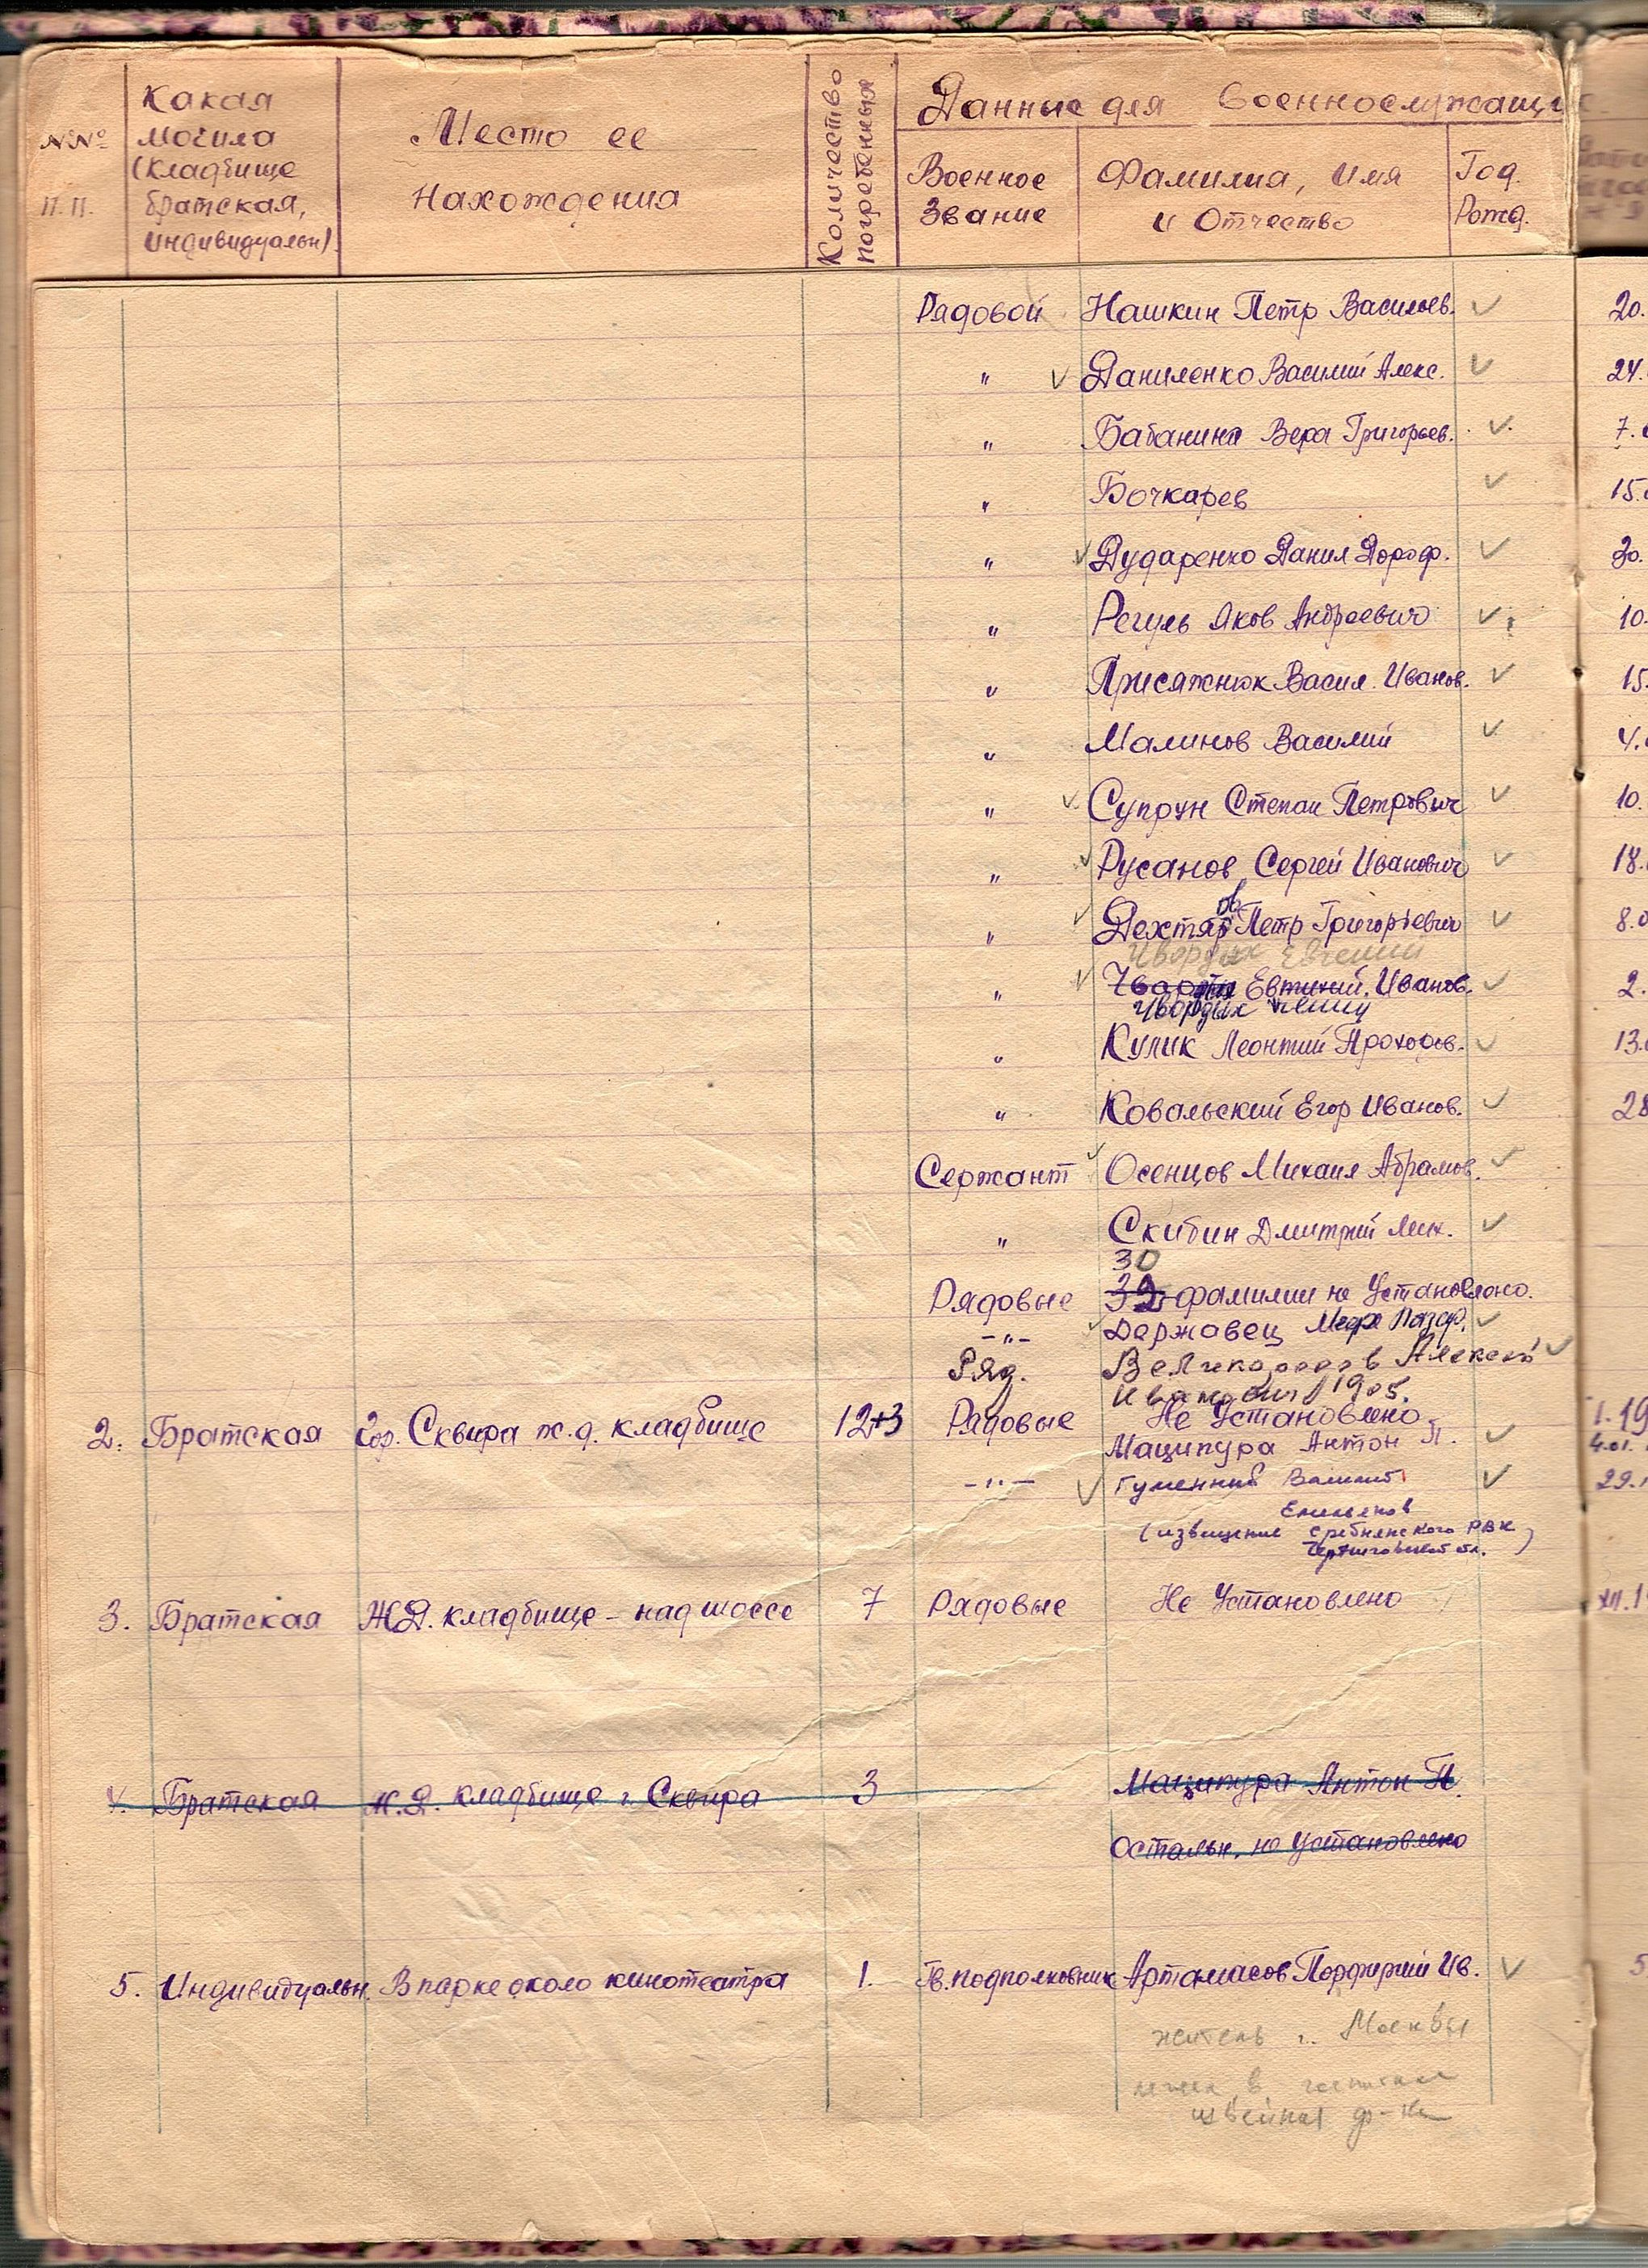 №№ п.п.
Какая могила (кладбище братская, индивидуальн)
Место ее нахождения
Количество погребенных
Данные для военнослужащих
Военное звание
Фамилия, имя и отчество
Год. Рожд.
Рядовой Нашкин Петр Васильев. 20.
" Даниленко Василий Алекс. 24.
" Бабанина Вера Григорьев. 7.
" Бочкарев 15.
" Дударенко Данил Дороф. 30.
" Регуль Яков Андреевич 10.
" Присяжнюк Васил. Иванов. 15.
" Малинов Василий 4.
" Супрун Степан Петрович 10.
" Русанов Сергей Иванович 18.
" Дехтяр Петр Григорьевич 8.
ов
Чвордых Евгений
" Евтихий. Иванов. 2.
Чвордых
" Кулик Леонтий Прохоров. 13.
" Ковальский Егор Иванов. 28
Сержант Осенцов Михаил Абрамов.
" Скибин Дмитрий Мих.
30
Рядовые 32 фамилии не установлено.
-"- Державец
Ряд. Великородов Алексей
Иванович 1905.
2. Братская Гор. Сквира ж.д. кладбище 12+3 Рядовые Не установлено I.19
Маципура Антон П. 4.01.
-"- Гуменный 29.
(извещение Сребнянского РВК
Черниговской обл.)
3. Братская Ж.Д. кладбище - над шоссе 7 Рядовые Не установлено XII.1
4. Братская Ж.Д. кладбище г. Сквира 3 Маципура Антон П.
Остальн. не установлено
5. Индивидуальн. В парке около кинотеатра 1. Гв. подполковник Артамасов Порфирий Ив. 5
житель г. Москвы
в
швейная ф-ка